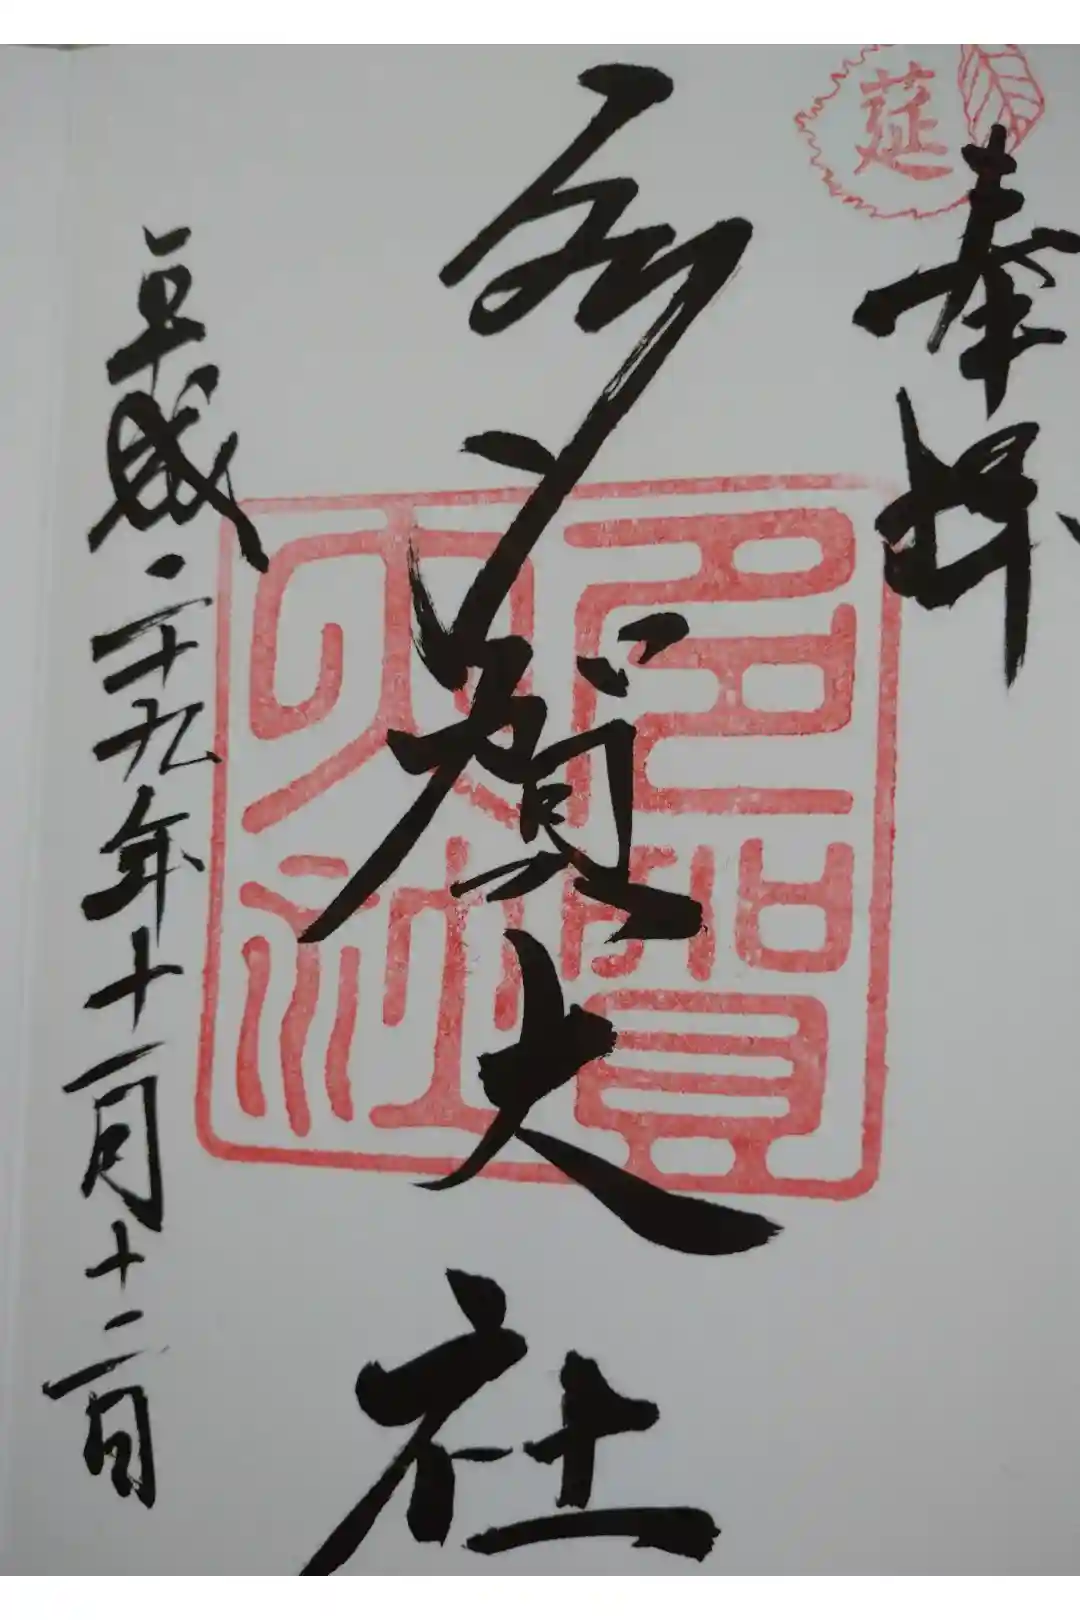 莚
奉拝
多賀大社
多賀
大社
平成二十九年十一月十二日